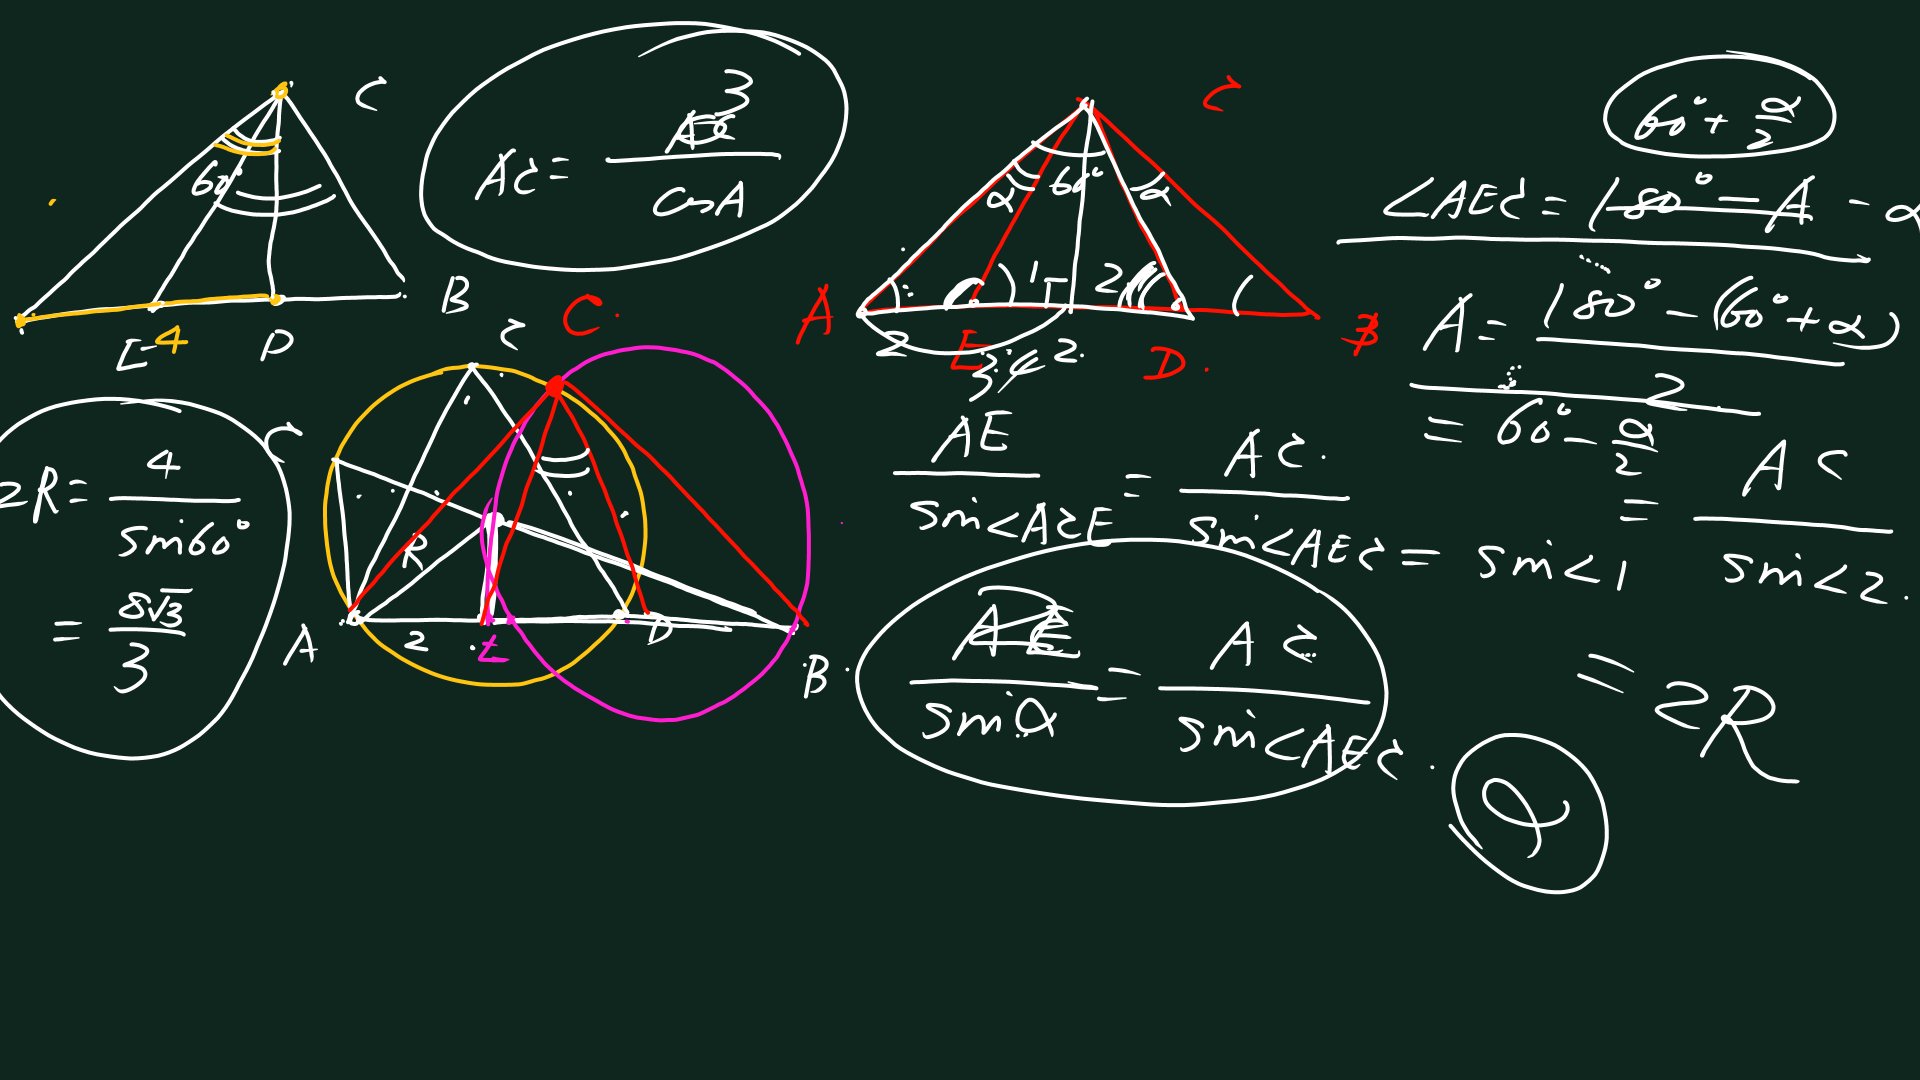 C
60°
B
E 4 D
AC = 3 / cosA
C
α 60° α
1 2
A 2 E 3 2 D B
60° + α/2
∠AEC = 180° - A - α
A = 180° - (60° + α) / 2
= 60° - α/2
C
2R = 4 / sin60°
= 8√3 / 3
C C
R
A 2 E D B
AE / sin∠ACE = AC / sin∠AEC = sin∠1 = AC / sin∠2
AE / sinα = AC / sin∠AEC
= 2R
α